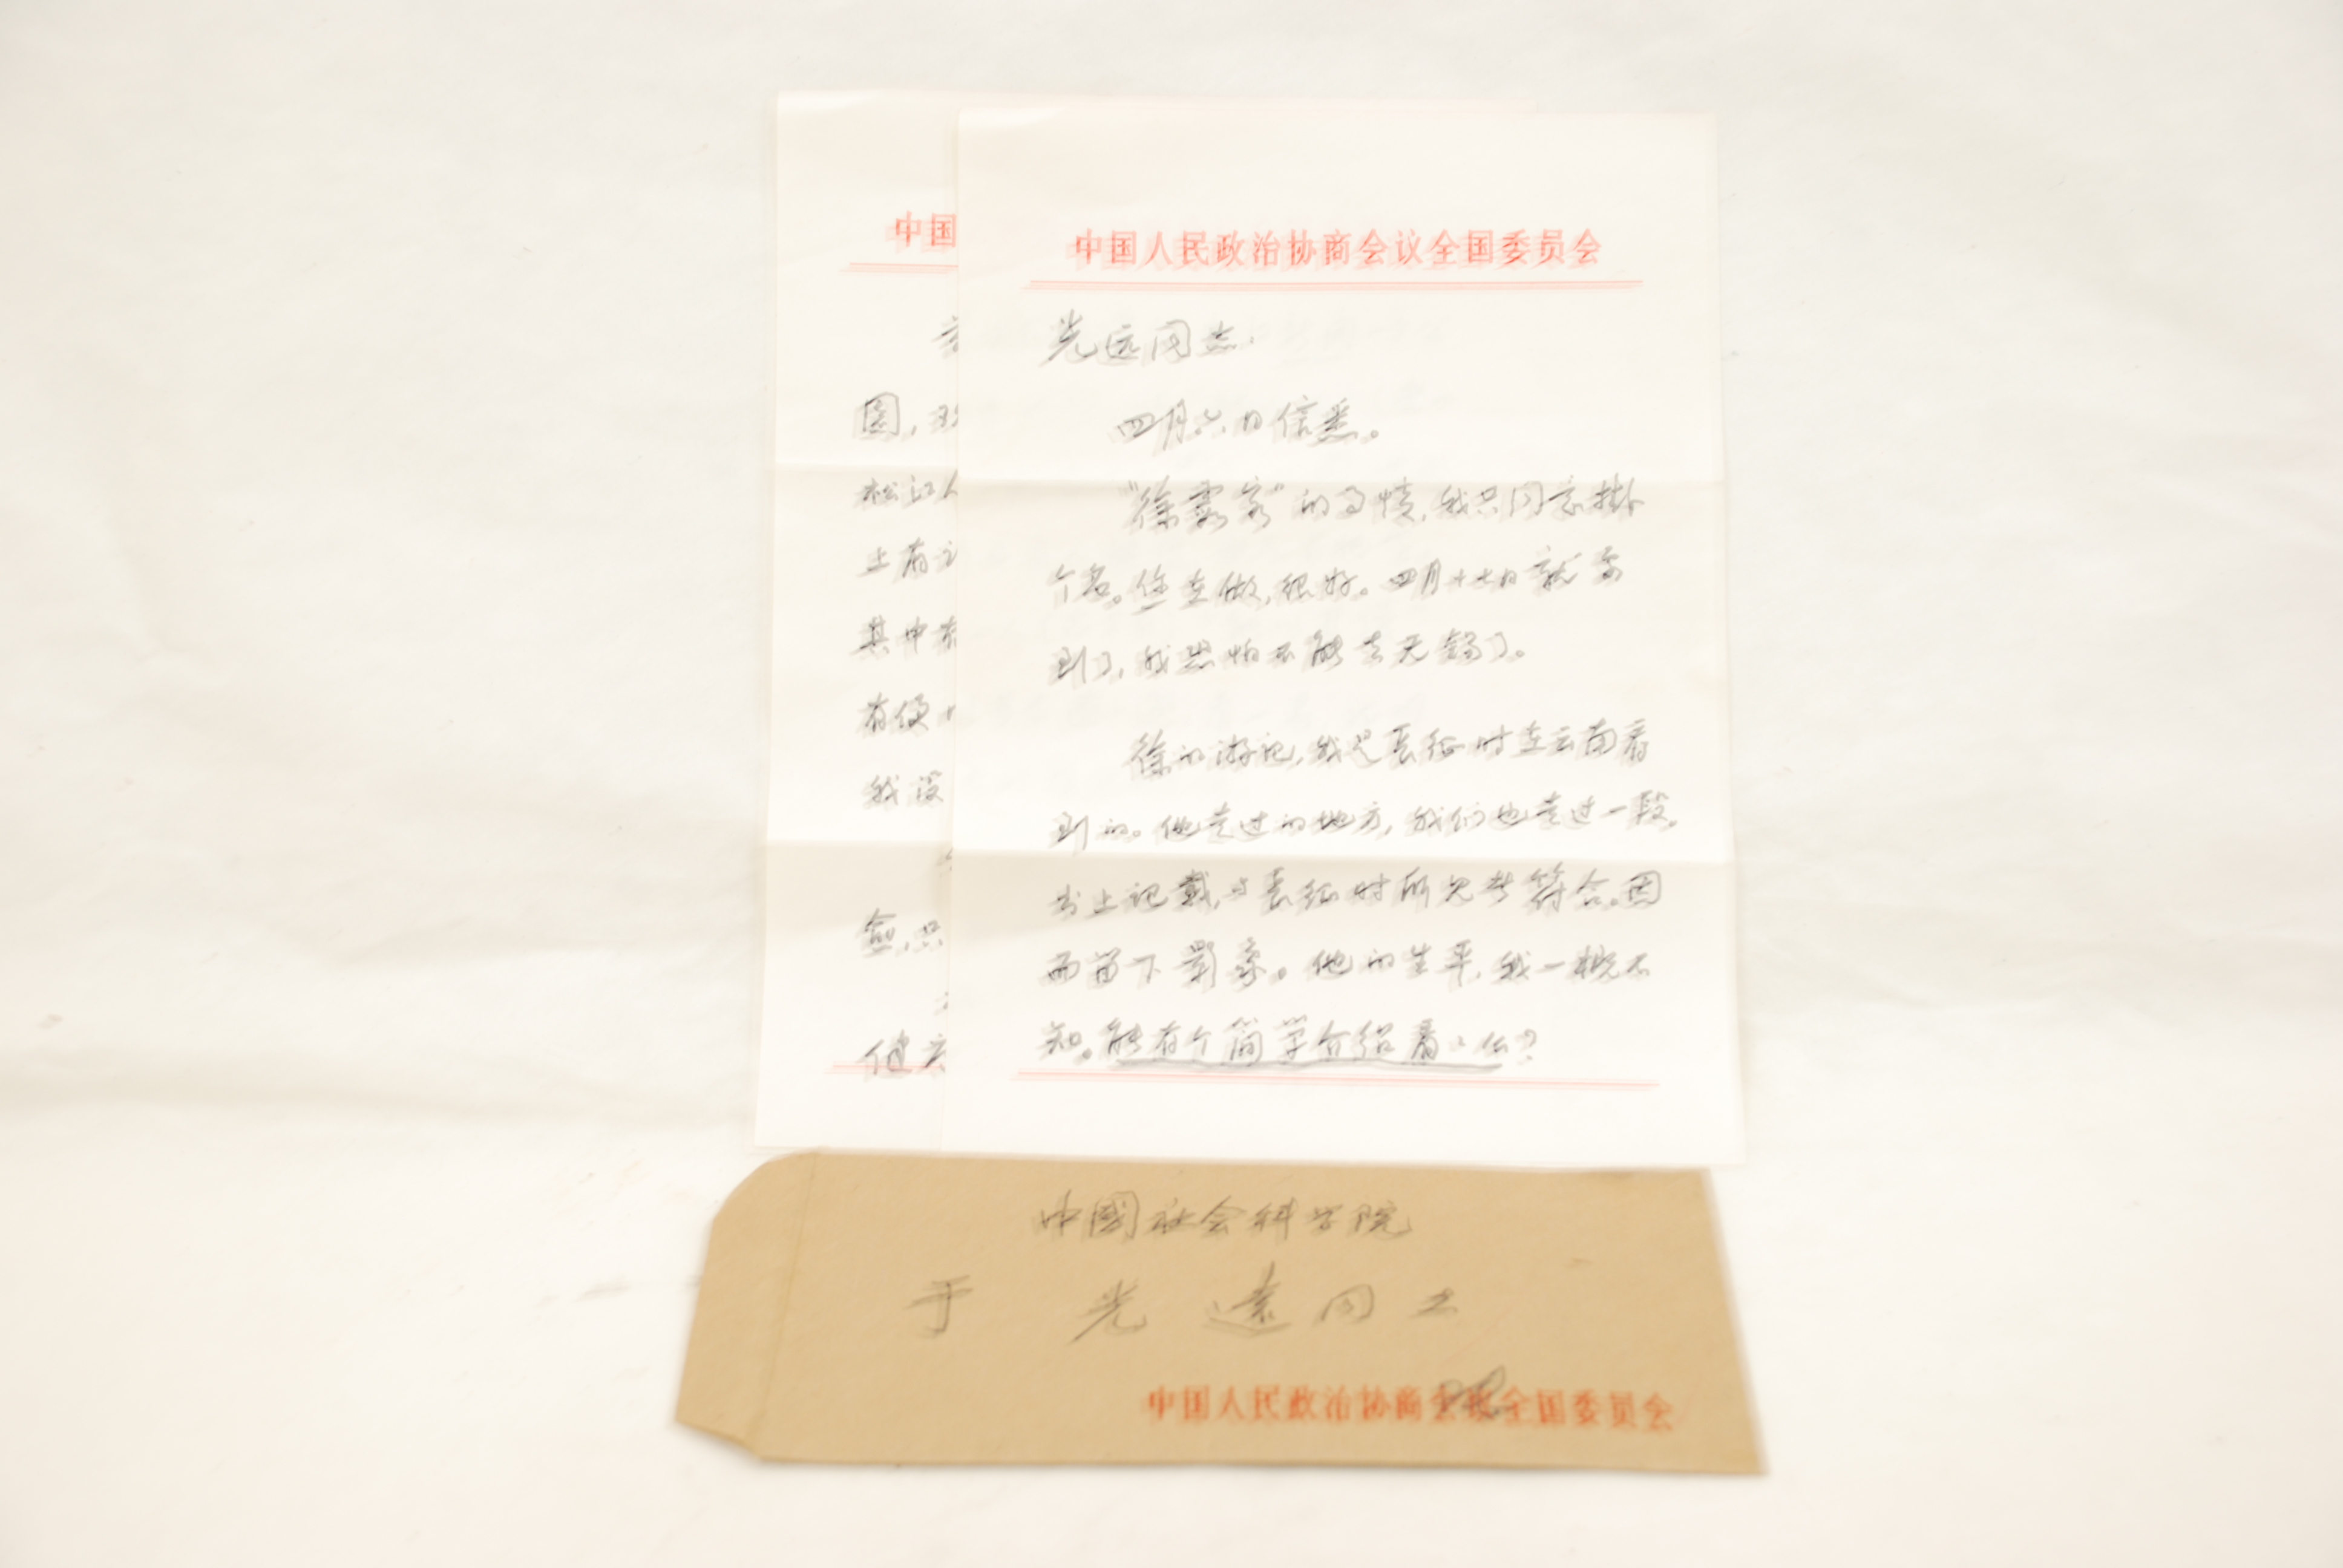 中国
园,
松江人
上有
其中有
有便
我没
愈,只
健
中国人民政治协商会议全国委员会
光远同志:
四月六日信悉。
“徐霞客”的事情,我只同意挂
个名。您在做,很好。四月十七日就要
到了,我恐怕不能去无锡了。
徐的游记,我是长征时在云南看
到的。他走过的地方,我们也走过一段。
书上记载,与长征时所见者符合。因
而留下影象。他的生平,我一概不
知。能有个简单介绍看看么?
中國社会科学院
于光遠同志
中国人民政治协商会议全国委员会